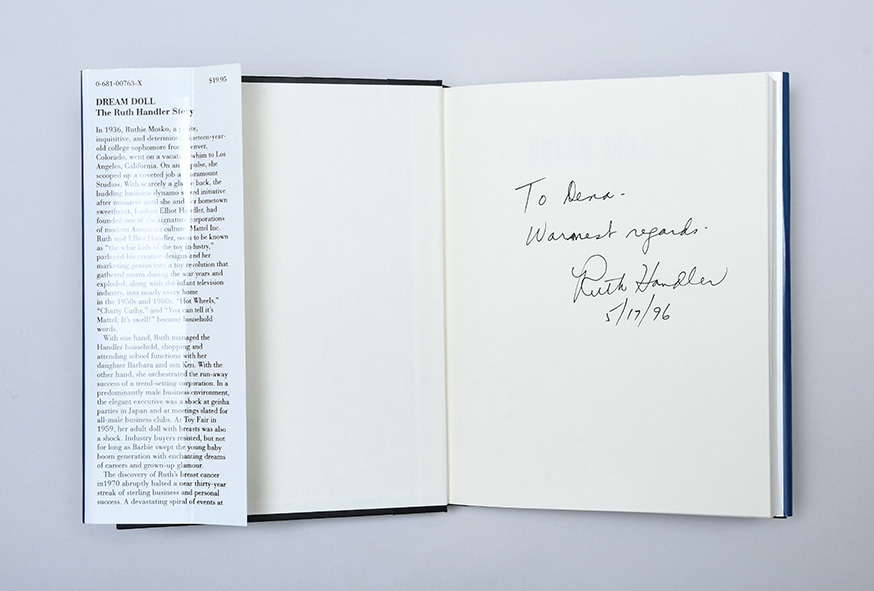 0-681-00763-X $19.95
DREAM DOLL
The Ruth Handler Story
In 1936, Ruthie Mosko, a
inquisitive, and determined nineteen-year-
old college sophomore from Denver,
Colorado, went on a vacation whim to Los
Angeles, California. On an impulse, she
scooped up a coveted job at Paramount
Studios. With scarcely a glance back, the
budding business dynamo seized initiative
after initiative until she and her hometown
sweetheart, Elliot Handler, had
founded one of the signature corporations
of modern American culture: Mattel Inc.
Ruth and Elliot Handler, soon to be known
as "the whiz kids of the toy industry,"
parlayed his creative designs and her
marketing genius into a toy revolution that
gathered steam during the war years and
exploded, along with the infant television
industry, into nearly every home
in the 1950s and 1960s. "Hot Wheels,"
"Chatty Cathy," and "You can tell it's
Mattel. It's swell!" became household
words.
With one hand, Ruth managed the
Handler household, shopping and
attending school functions with her
daughter Barbara and son Ken. With the
other hand, she orchestrated the run-away
success of a trend-setting corporation. In a
predominantly male business environment,
the elegant executive was a shock at geisha
parties in Japan and at meetings slated for
all-male business clubs. At Toy Fair in
1959, her adult doll with breasts was also
a shock. Industry buyers resisted, but not
for long as Barbie swept the young baby
boom generation with enchanting dreams
of careers and grown-up glamour.
The discovery of Ruth's breast cancer
in1970 abruptly halted a near thirty-year
streak of sterling business and personal
success. A devastating spiral of events at
To Dena-
Warmest regards-
Ruth Handler
5/17/96